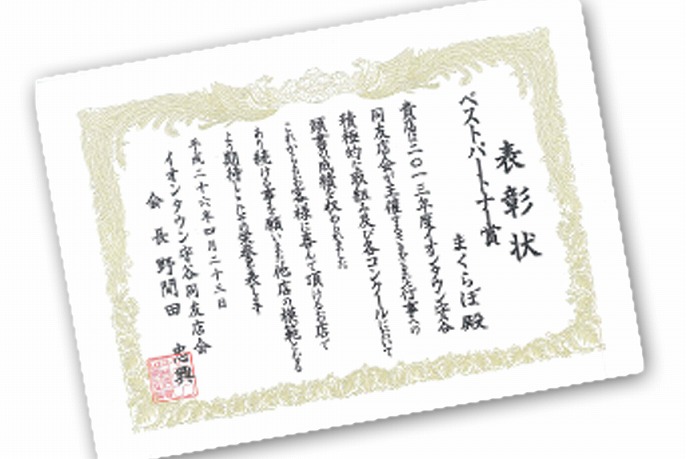 表彰状
ベストパートナー賞
まくらぼ殿
貴店は二〇一三年度イオンタウン守谷
同友店会が主催するさまざまな行事への
積極的な取組み及び各コンクールにおいて
顕著な成績を収められました
これからもお客様に喜んで頂けるお店で
あり続ける事を願いまた他店の模範となる
よう期待しこれを栄誉を表します
平成二十六年四月二十三日
イオンタウン守谷同友店会
会長 野間田 忠興